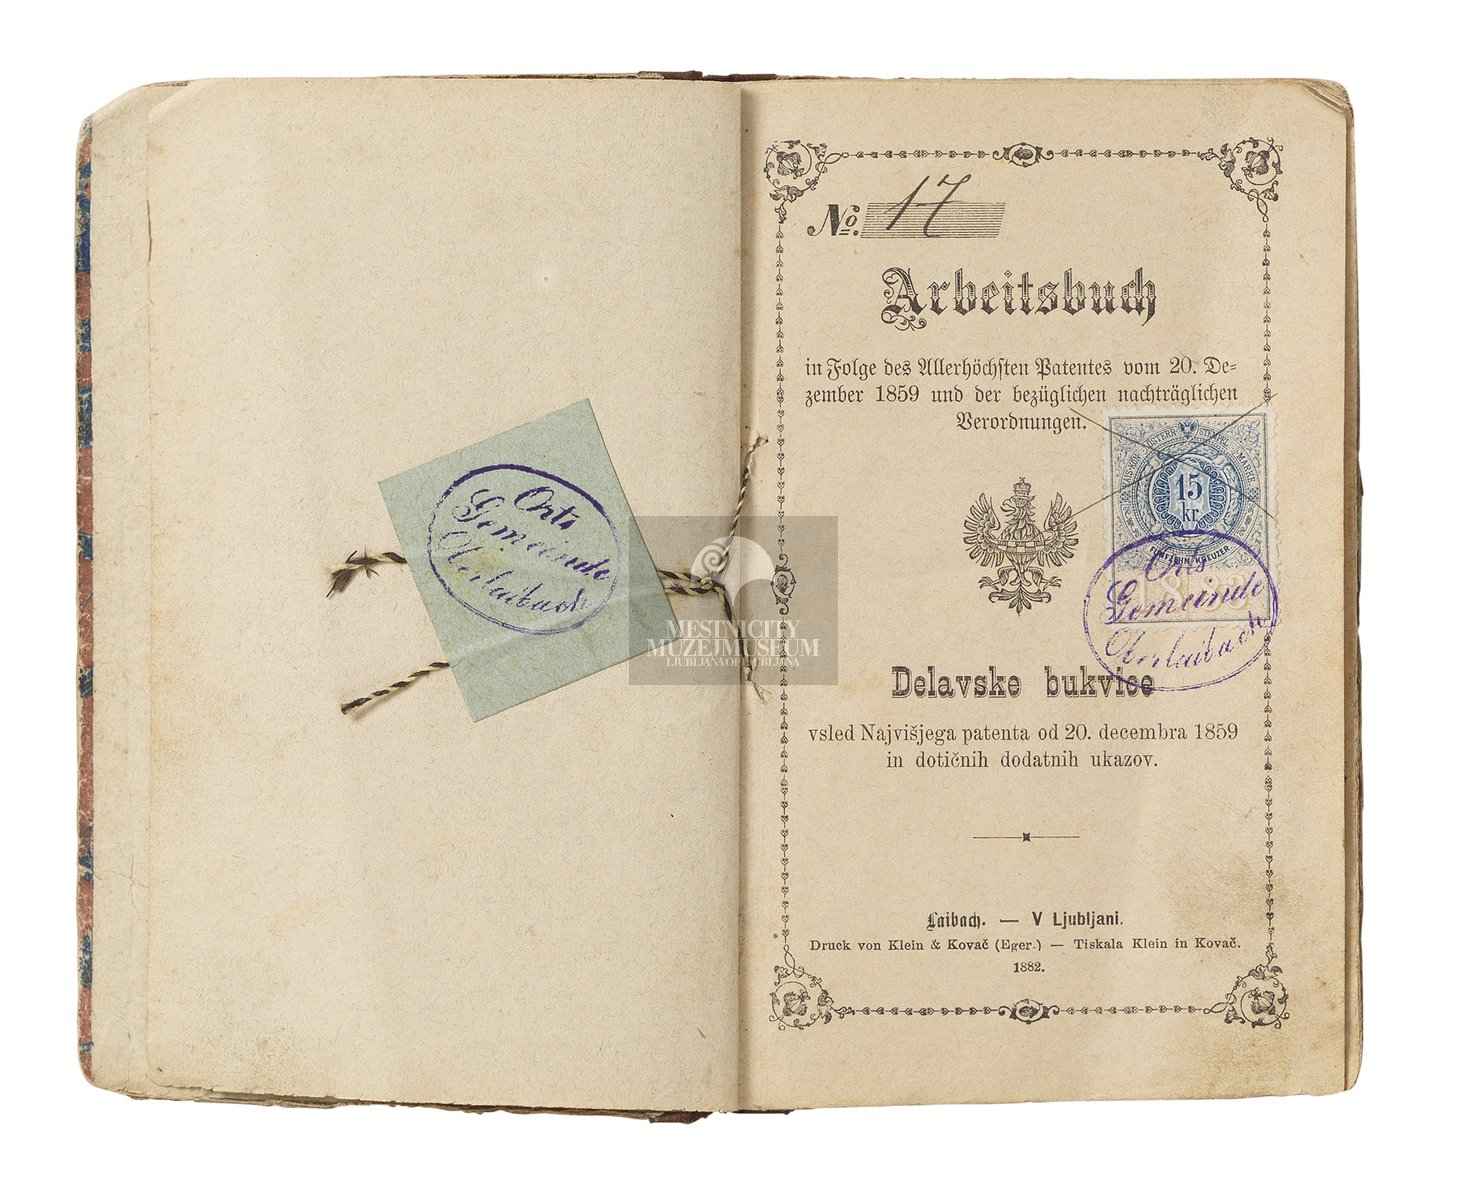 Orts
Gemeinde
Oberlaibach
№. 17
Arbeitsbuch
in Folge des Allerhöchsten Patentes vom 20. De-
zember 1859 und der bezüglichen nachträglichen
Verordnungen.
KAIS. KÖN. ÖSTERR. STEMPEL MARKE
15
kr.
FÜNFZEHN KREUZER
1883
Orts
Gemeinde
Oberlaibach
MESTNI CITY
MUZEJ MUSEUM
LJUBLJANA OF LJUBLJANA
Delavske bukvice
vsled Najvišjega patenta od 20. decembra 1859
in dotičnih dodatnih ukazov.
Laibach. — V Ljubljani.
Druck von Klein & Kovač (Eger.) — Tiskala Klein in Kovač.
1882.